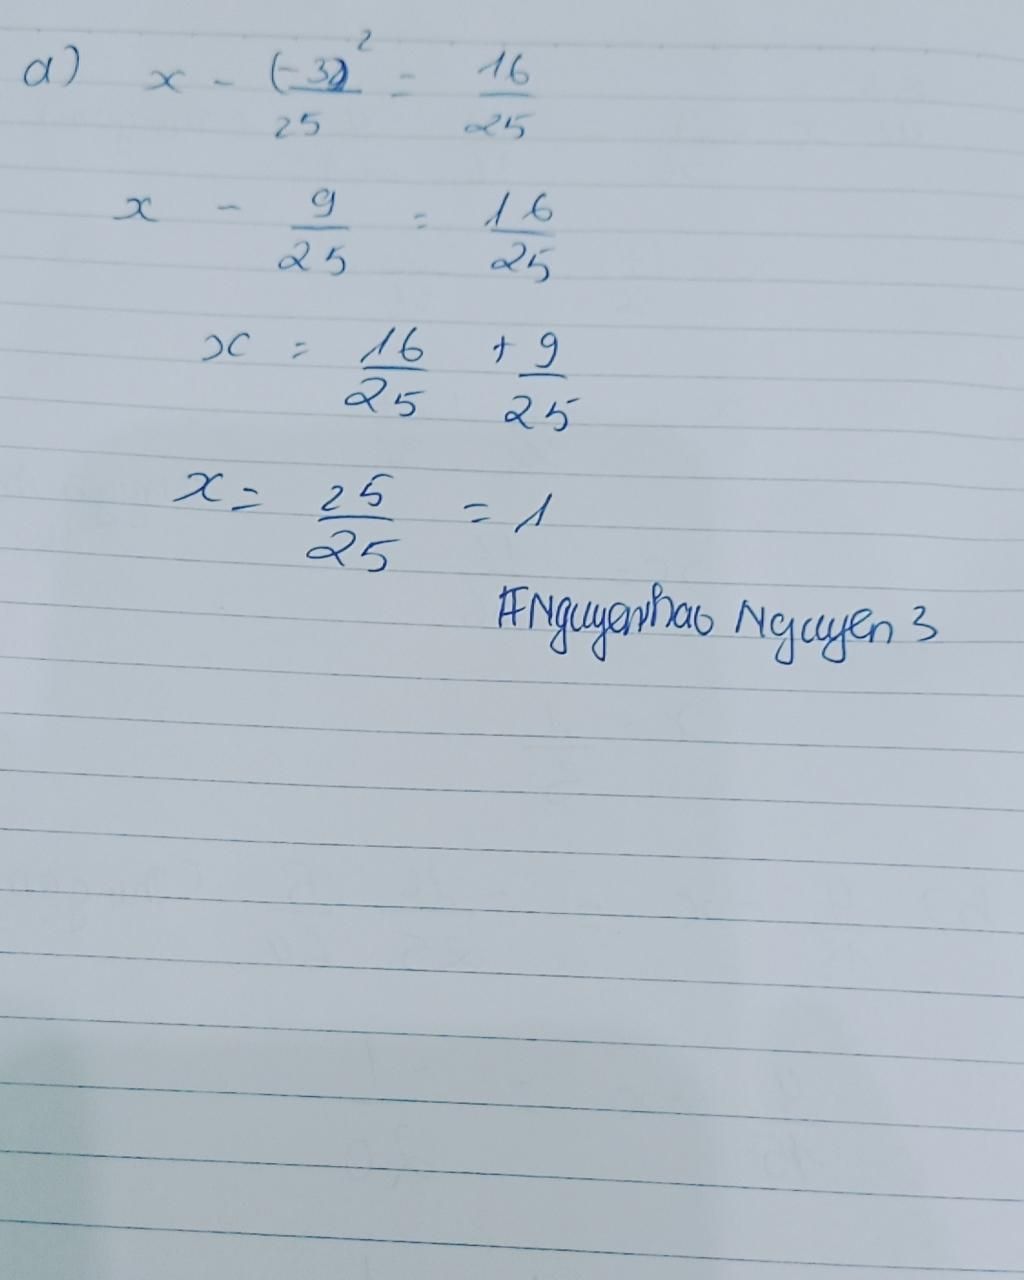 a) x - (-3)²/25 = 16/25
x - 9/25 = 16/25
x = 16/25 + 9/25
x = 25/25 = 1
#Nguyenhao Nguyen3